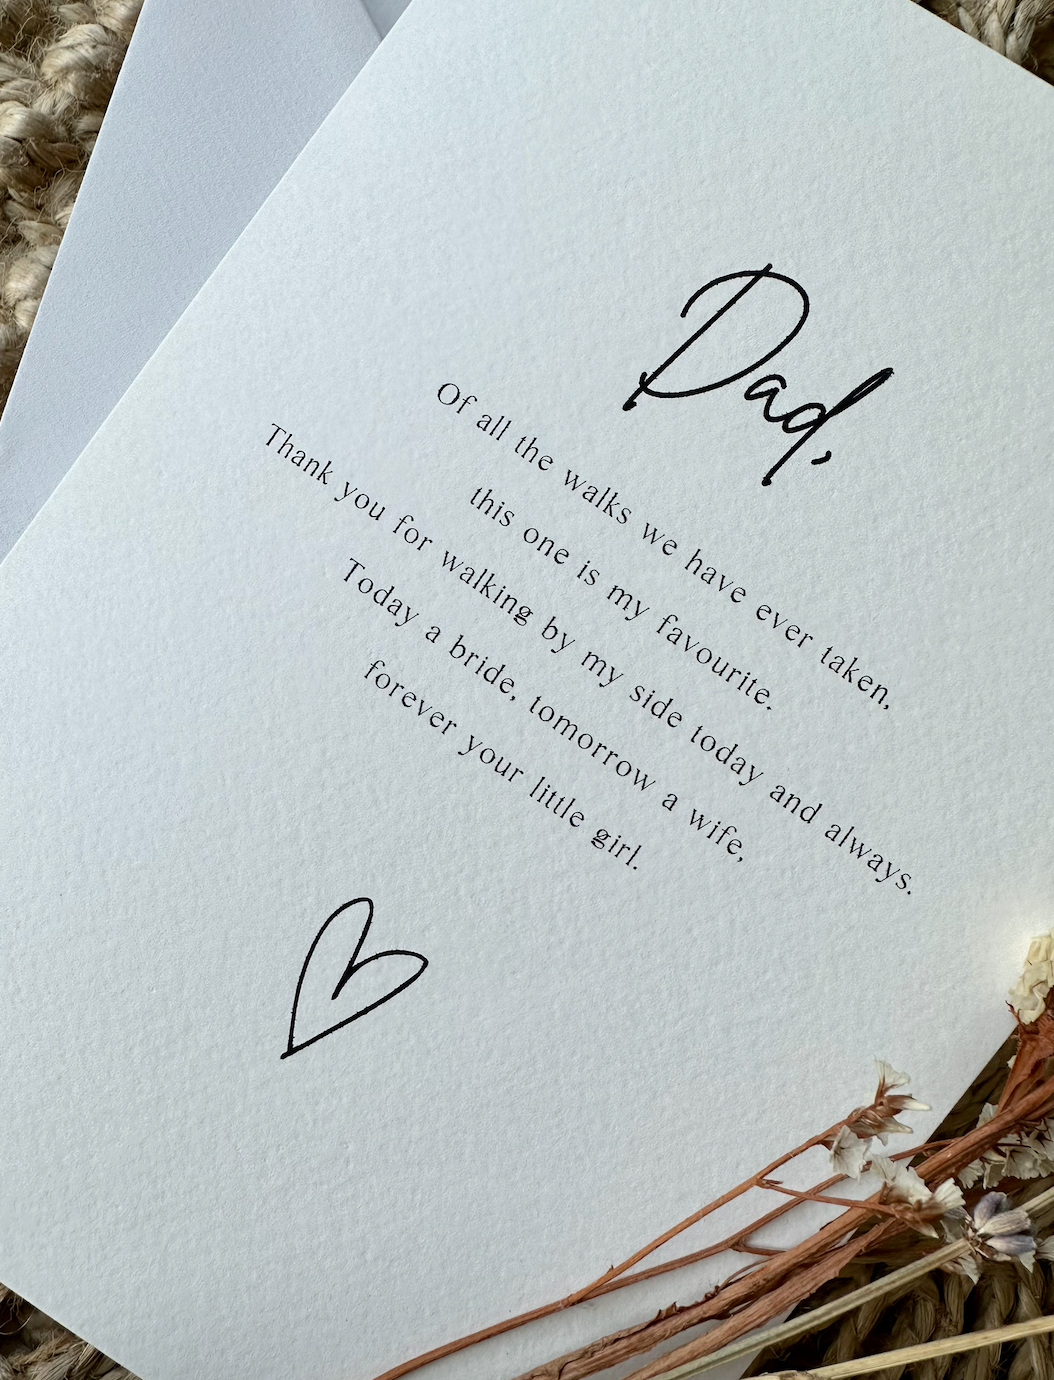 Dad,
Of all the walks we have ever taken,
this one is my favourite.
Thank you for walking by my side today and always.
Today a bride, tomorrow a wife,
forever your little girl.